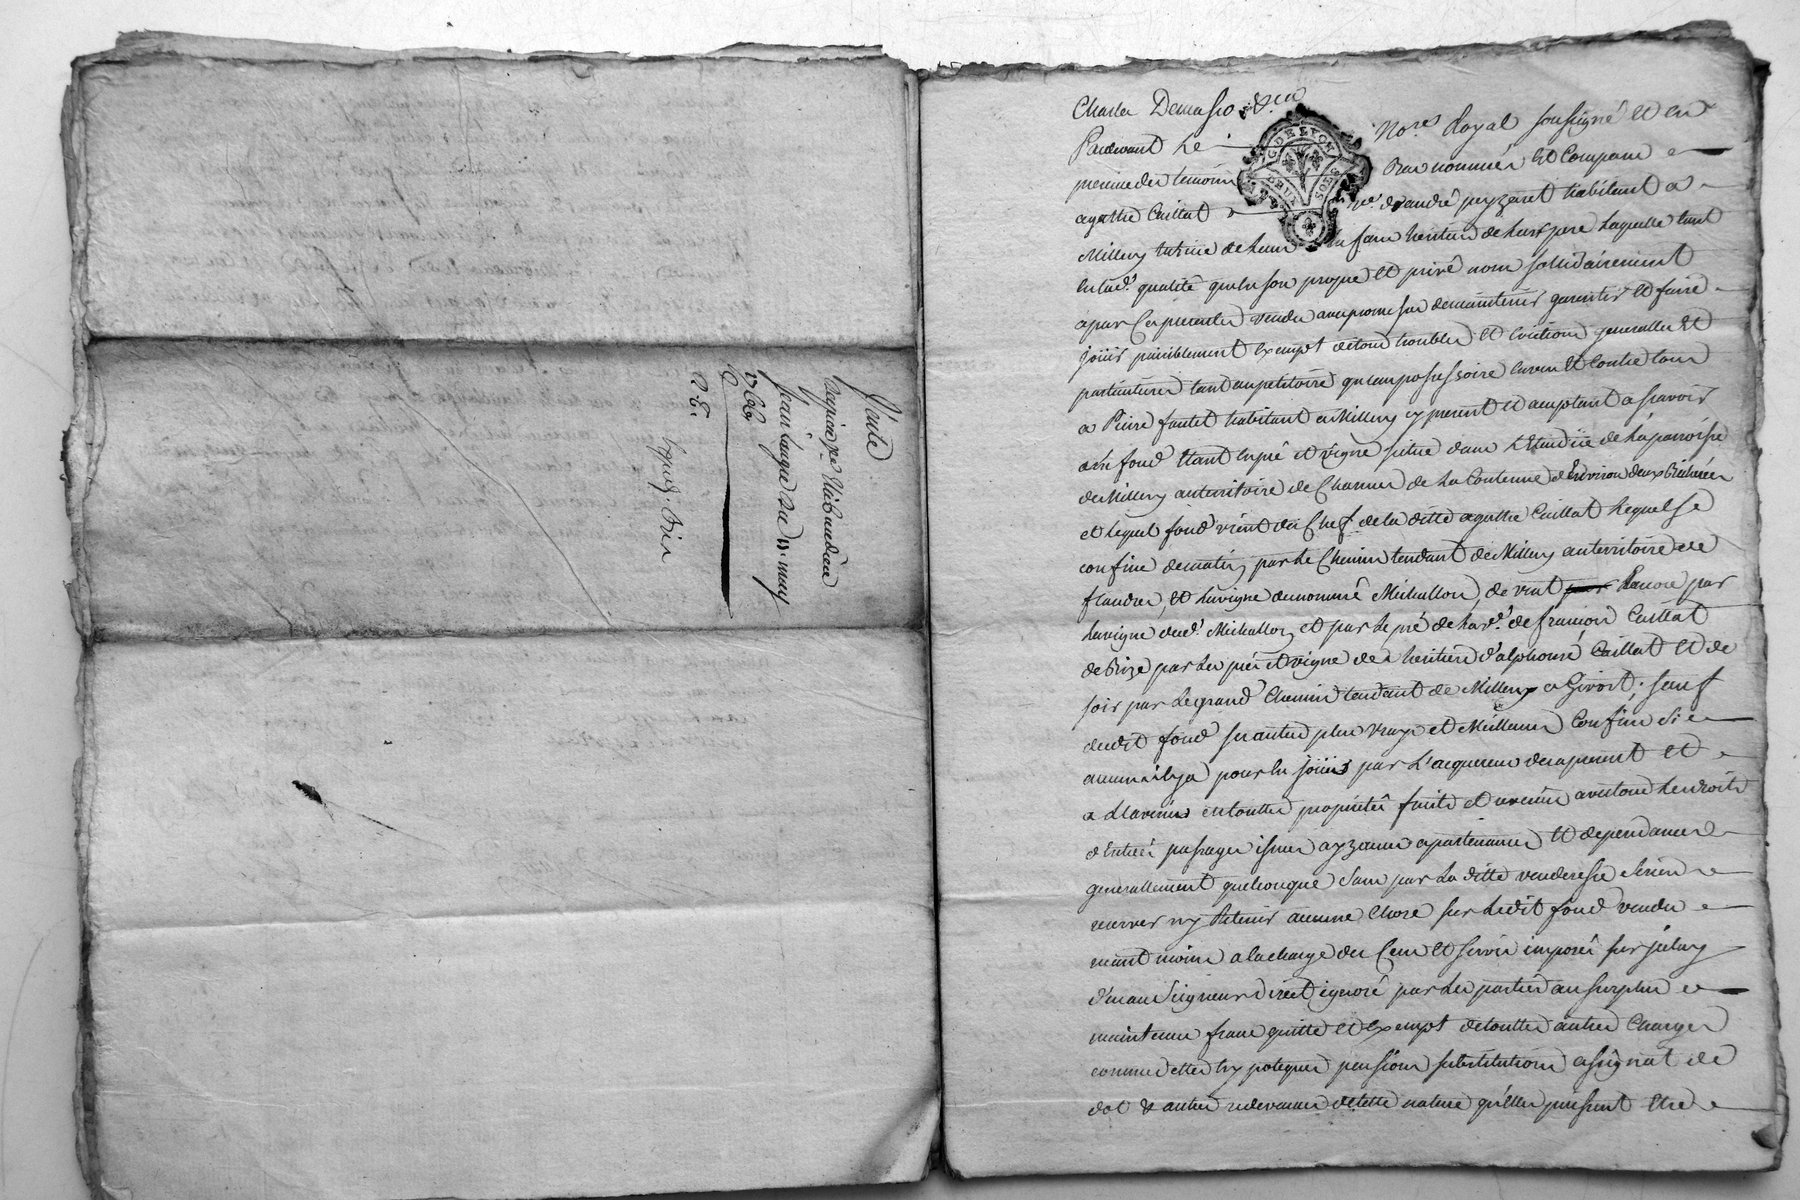 Vante
Jean Lauge du 13. may
1766
Charles Demasso
Pardevant Le No.re Royal soussigné et en
presence des temoins Bas nommés et Compare
G DE LYON
DEUX SOLS
agathe Caillat v.ve d'andré peyzaret habitant a
Millery tutrice de leurs enfans heritiers de leur pere Laquelle tant
en lad.e qualité qu'en son propre et privé nom sollidairement
a par Ces presentes vendu avec promesse de maintenir garentir et faire
joüir paisiblement Exempt de tous troubles et Evictions generalles et
particulieres tant au petitoire qu'au possessoire Envers et Contre tous
a Pierre fautet habitant a Millery cy present et aceptant a sçavoir
un fond Etant en pré et vigne situé dans L'Etendüe de La parroisse
de Millery au territoire de Charmes de La Contenue d'Environ deux Bicherées
et Lequel fond vient du Chef de la ditte agathe Caillat Lequel se
confine de matin par le Chemin tendant de Millery au territoire de
flandres, et La vigne du nommé Michallon, de vent Encore par
La vigne dud.t Michallon et par Le pré de La v.e de françois Caillat
de Bize par Les prés et vigne des heritiers d'alphonse Caillat et de
soir par Le grand Chemin tendant de Millery a Givort, sauf
dudit fond ses autres plus vrays et Meilleurs Confins si
aucuns il y a pour en joüir par L'acquereur des a present et
a L'avenir en toutte propriété fruits et revenus avec tous Les droits
d'Entrées passages issues ayzances apartenances et dependances
generallement quelconques sans par La ditte venderesse se rien
reserver ny Retenir aucune Chose sur Ledit fond vendu
neant moins a la charge des Cens et servis imposés sur icelluy
d'un au Seigneur direct ignoré par Les parties au surplus
maintenu franc quitte et Exempt de touttes autres Charges
comme dettes hypoteques pensions substitutions assignat de
dot & autres redevances de telle nature qu'elles puissent Etre